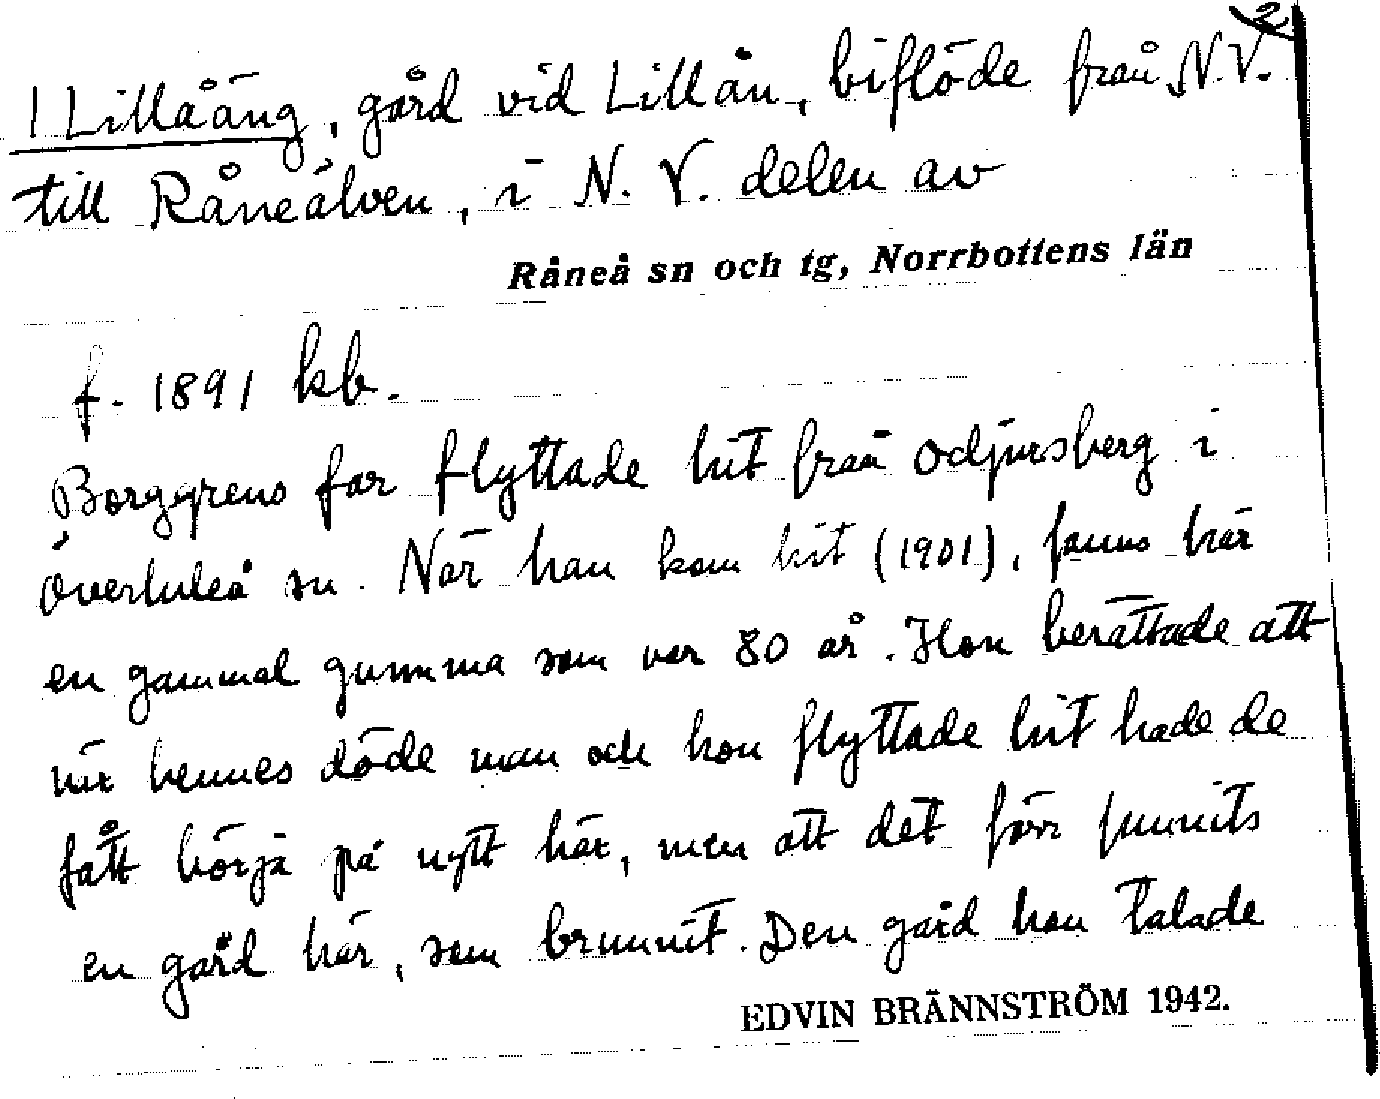 2
1 Lillåäng, gård vid Lillån, biflöde från N.V.
till Råneälven, i N. V. delen av
Råneå sn och tg, Norrbottens län
f. 1891 kb.
Borggrens far flyttade hit från Odjursberg i
Överluleå sn. När han kom hit (1901), fanns här
en gammal gumma som var 80 år. Hon berättade att
när hennes döde man och hon flyttade hit hade de
fått börja på nytt här, men att det förr funnits
en gård här, som brunnit. Den gård hon talade
EDVIN BRÄNNSTRÖM 1942.